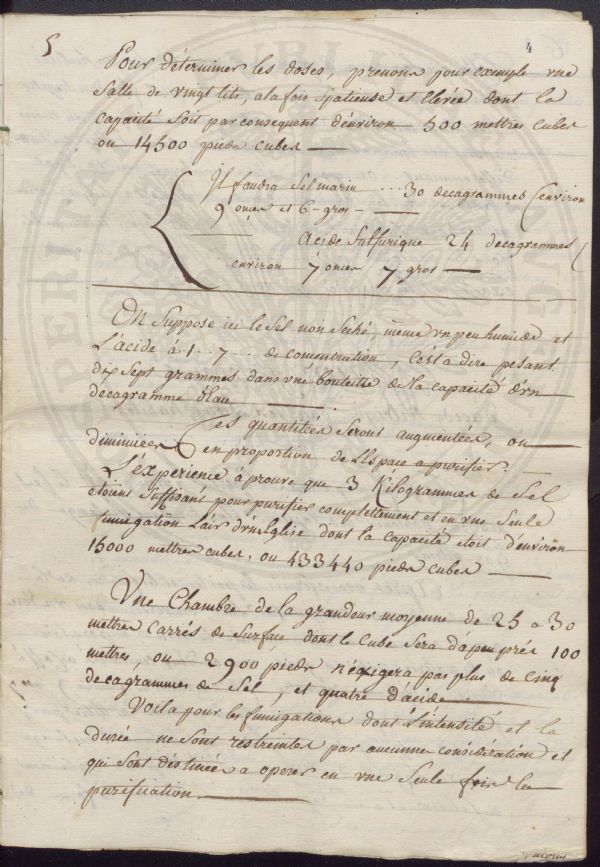 5
4
Pour déterminer les doses, prenons pour exemple une
Salle de vingt lits, ala fois Spatieuse et Elevée dont la
capacité Soit par consequent d'énviron 500 mettres Cubes
ou 14500 pieds cubes
Il faudra Sel marin ... 30 decagrammes (environ
9 onces et 6 gros
acide Sulfurique 24 decagrammes (
environ 7 onces 7 gros
On Suppose ici le Sel non Seché, même un peu humide et
L'acide à 1..7.. de concentration, C'est a dire pesant
dix Sept grammes dans une bouteille de la capacité d'un
decagramme d'Eau
Ces quantitées Seront augmentées, ou
diminuées en proportion de L'Espace a purifier.
L'éxperience à prouvé que 3 Kilogrammes de Sel
etoient Suffisant pour purifier complettement et en une Seule
fumigation L'air d'un Eglise dont la capacité etoit d'environ
15000 mettres cubes, ou 433440 pieds cubes
Une Chambre de la grandeur moyenne de 25 a 30
mettres Carrés de Surface dont le Cube Sera d'apeu près 100
mettres, ou 2900 pieds n'éxigera pas plus de Cinq
decagrammes de Sel, et quatre d'acide
Voila pour les fumigations dont L'intensité et la
durée ne Sont restreintes par aucunne considération et
qui Sont destinées a operer en une Seule fois la
purification